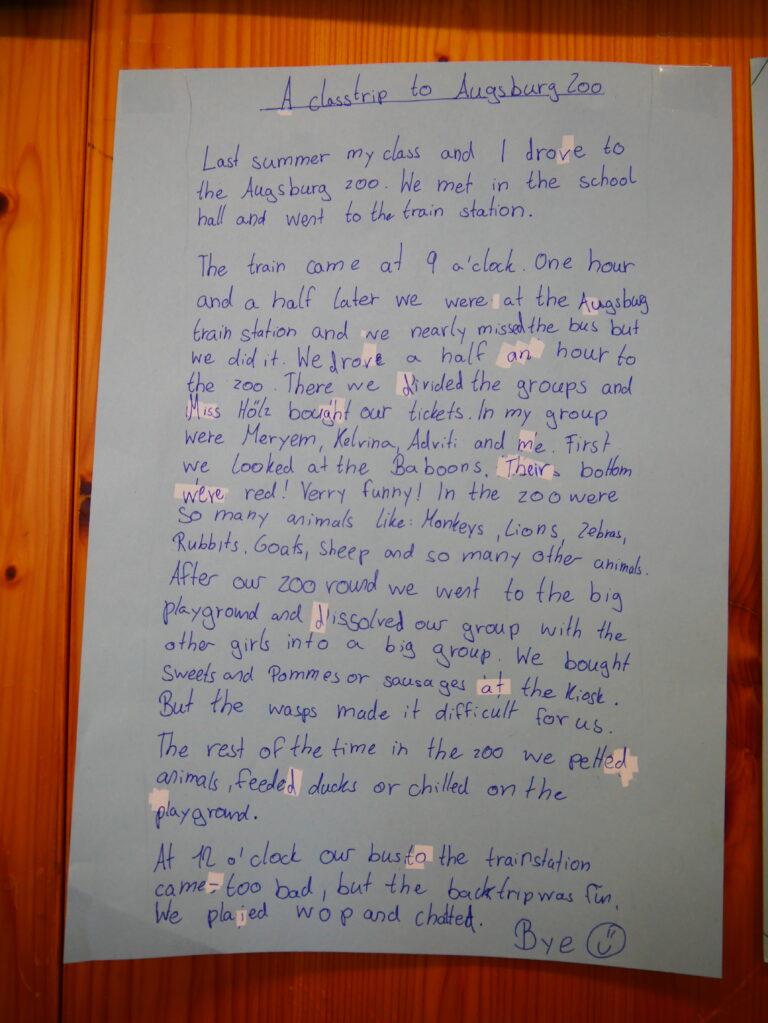 A classtrip to Augsburg Zoo
Last summer my class and I drove to
the Augsburg zoo. We met in the school
hall and went to the train station.
The train came at 9 o'clock. One hour
and a half later we were at the Augsbug
train station and we nearly missed the bus but
we did it. We drove a half an hour to
the zoo. There we divided the groups and
Miss Hölz bought our tickets. In my group
were Meryem, Kelvina, Adviti and me. First
we looked at the Baboons. Their bottom
were red! Verry funny! In the zoo were
so many animals like: Monkeys, Lions, Zebras,
Rubbits, Goats, Sheep and so many other animals.
After our zoo round we went to the big
playground and dissolved our group with the
other girls into a big group. We bought
Sweets and Pommes or sausages at the Kiosk.
But the wasps made it difficult for us.
The rest of the time in the zoo we petted
animals, feeded ducks or chilled on the
playground.
At 12 o'clock our bus to the trainstation
came - too bad, but the backtrip was fun.
We plaied wop and chatted.
Bye